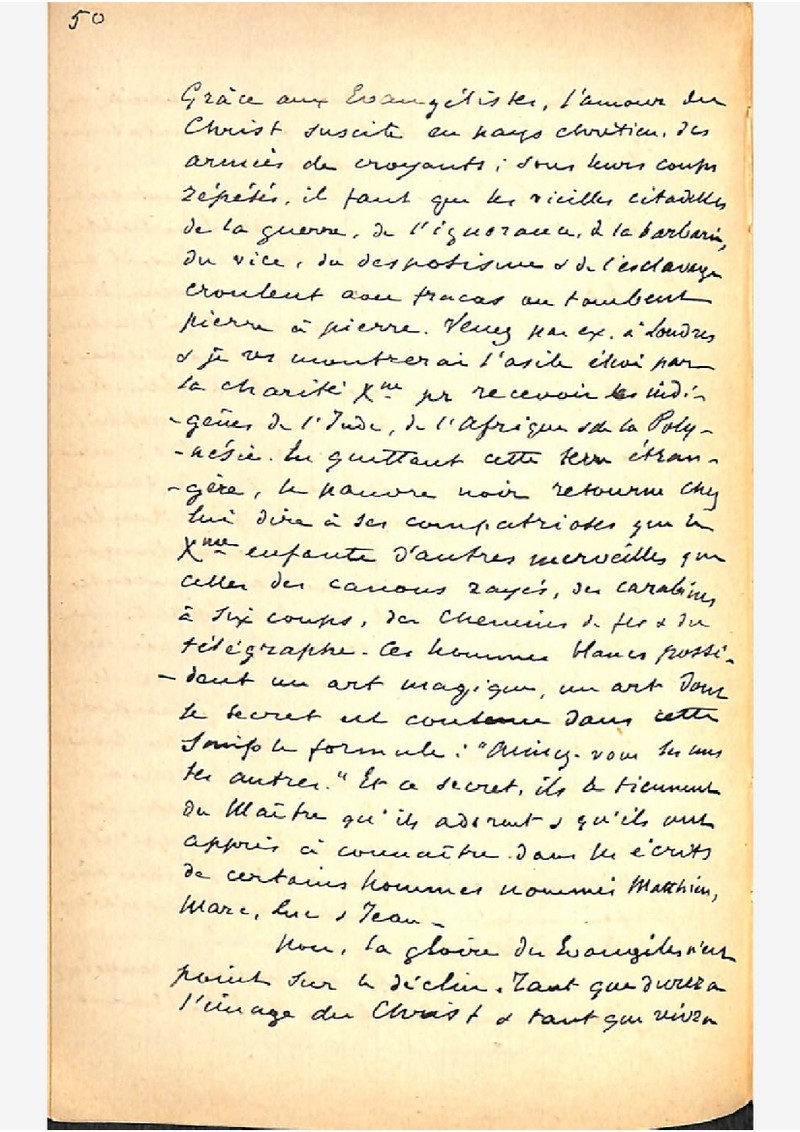 50
Grâce aux Evangélistes, l'amour du
Christ suscite en pays chrétien, des
armées de croyants ; sous leurs coups
répétés, il faut que les vieilles citadelles
de la guerre, de l'ignorance, d la barbarie,
du vice, du despotisme & de l'esclavage
croulent avec fracas ou tombent
pierre à pierre. Venez par ex. à Londres
& je vs montrerai l'asile élevé par
la charité Xne pr recevoir les indi-
-gènes de l'Inde, de l'Afrique & de la Poly-
-nésie. En quittant cette terre étran-
-gère, le pauvre noir retourne chez
lui dire à ses compatriotes que le
Xme enfante d'autres merveilles que
celles des canons rayés, des carabines
à six coups, des chemins de fer & du
télégraphe. Ces hommes blancs possè-
-dent un art magique, un art dont
le secret est contenu dans cette
simple formule : "Aimez-vous les uns
les autres." Et ce secret, ils le tiennent
du Maître qu'ils adorent & qu'ils ont
appris à connaître dans les écrits
de certains hommes nommés Matthieu,
Marc, Luc & Jean -
Non, la gloire des Evangiles n'est
point sur le déclin. Tant que durera
l'image du Christ & tant que vivra